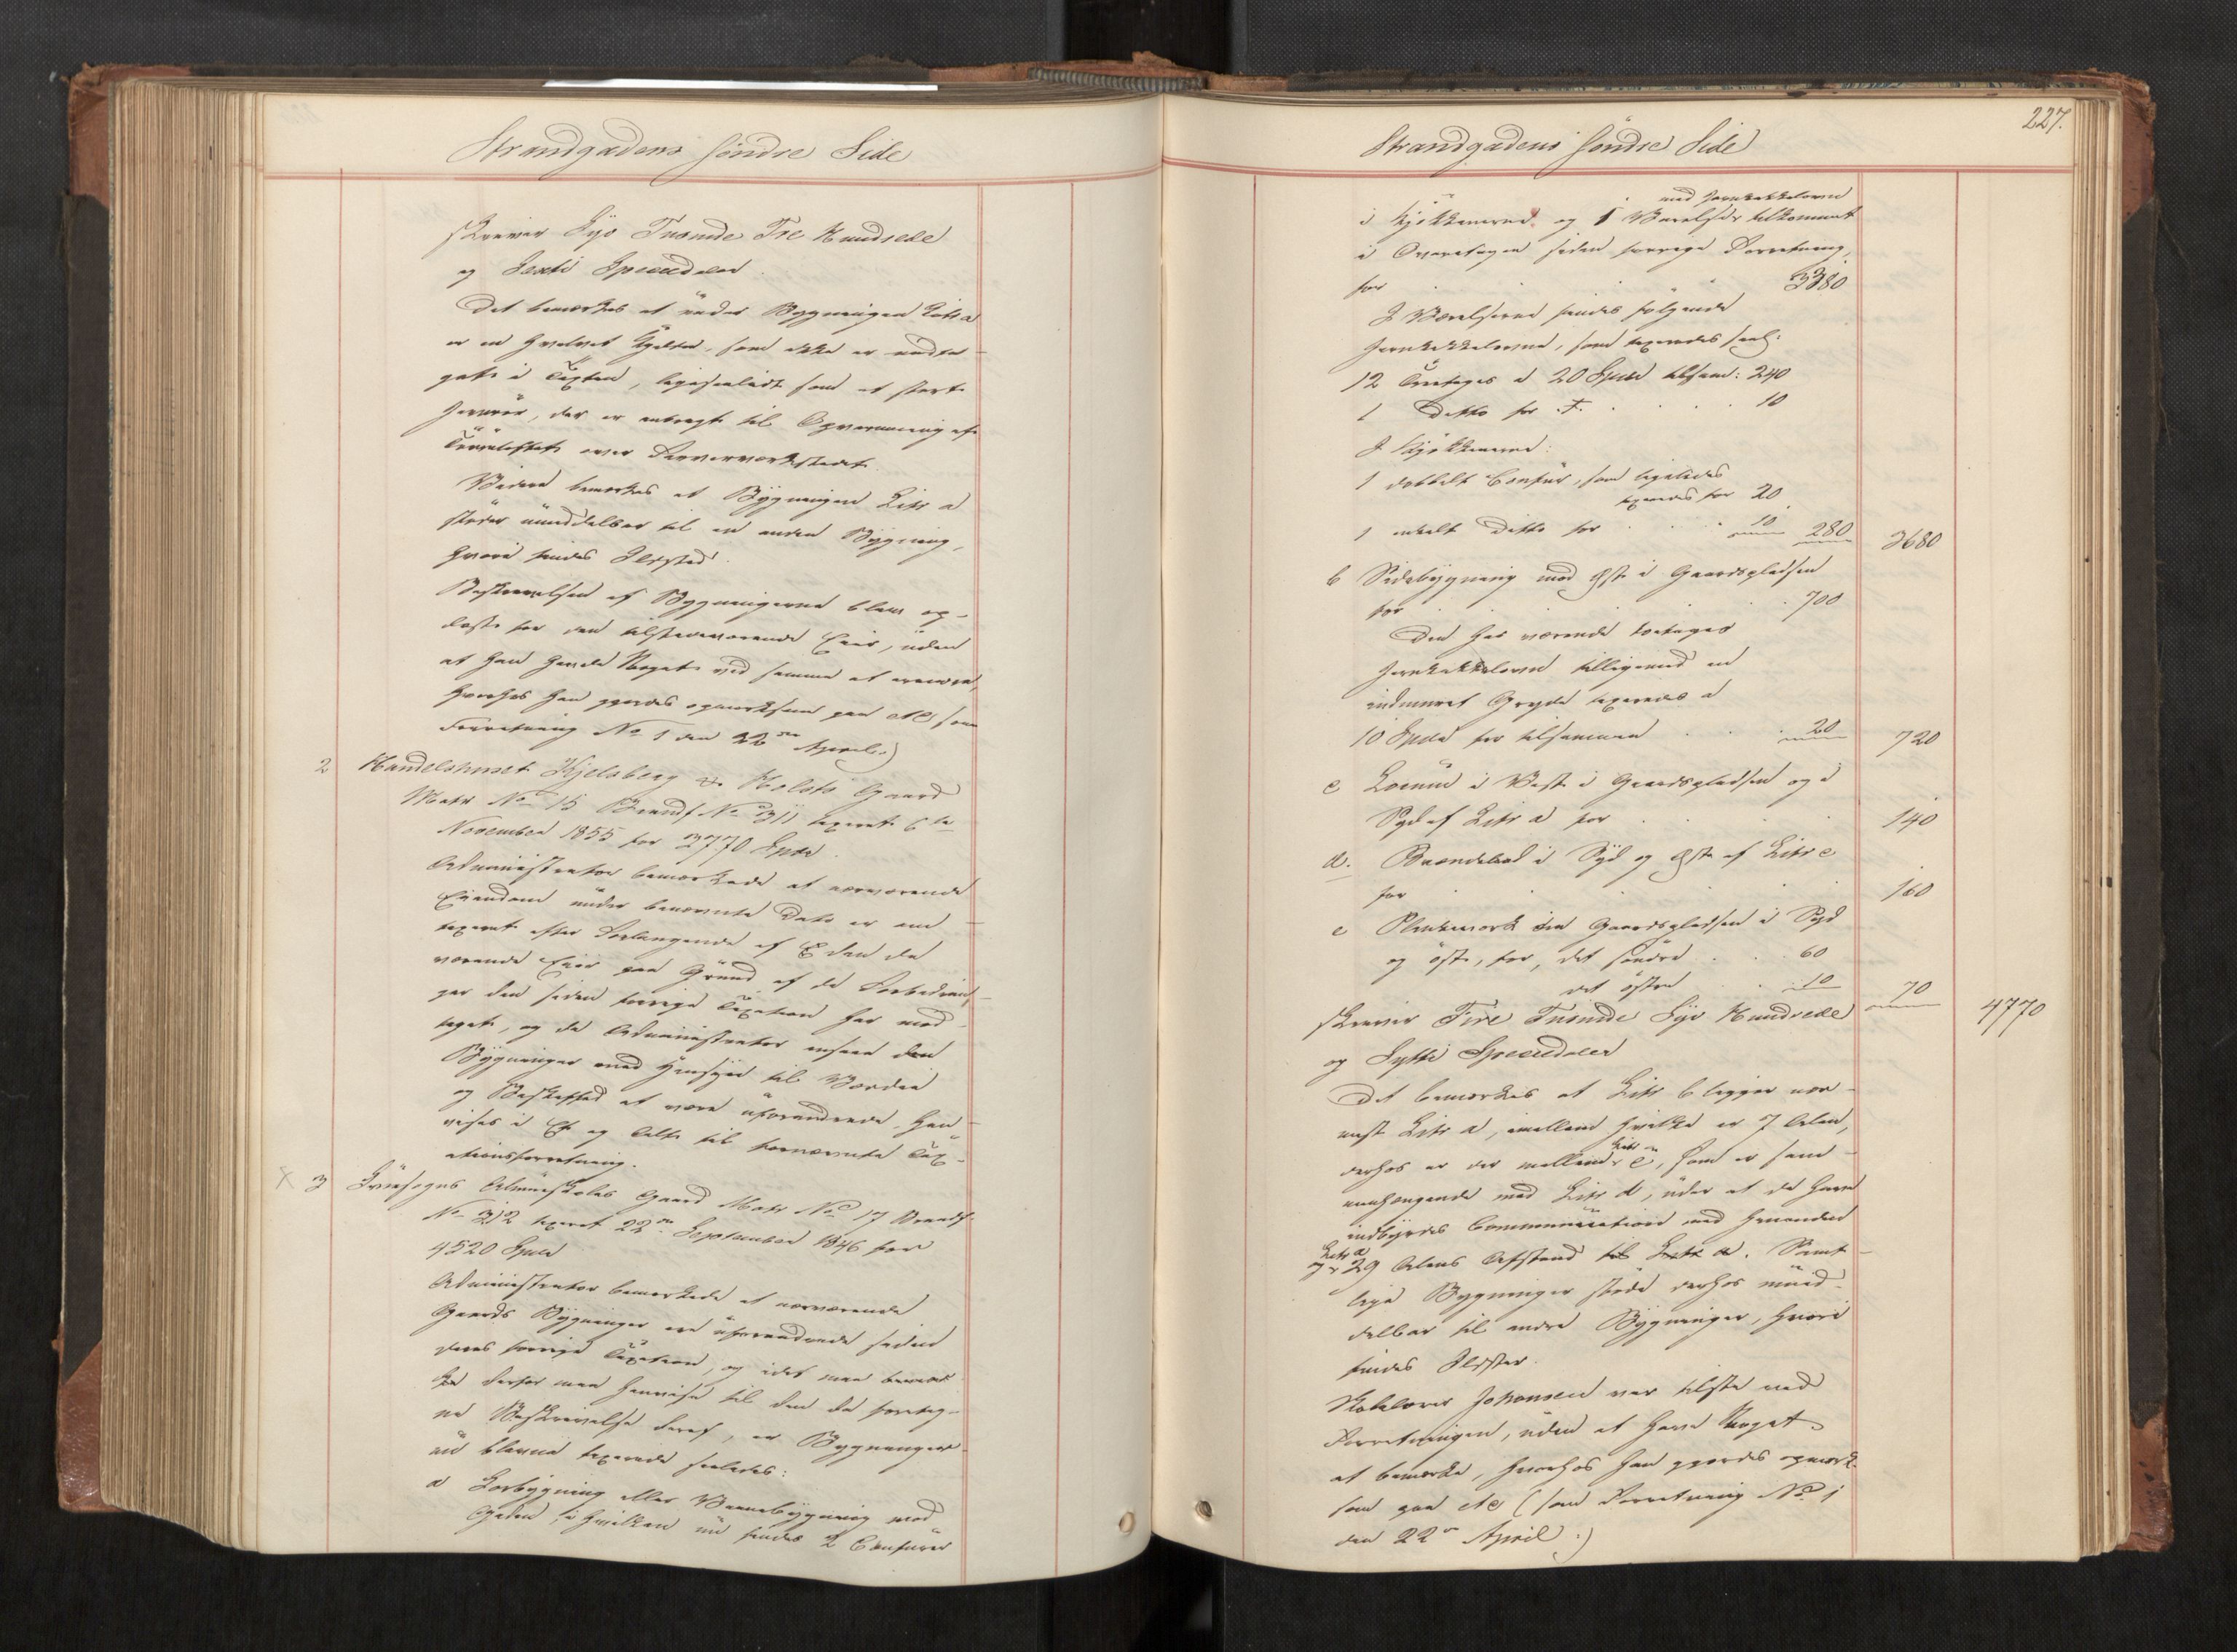 Strandgadens søndre Side
skriver Syv Tusinde Tre Hundrede
og Sexti Speciedaler.
Det bemærkes at under Bygningen Litr a
er en hvelvet Kjelder, som ikke er medta-
get i Taxten, ligesaalidt som et stort
Jernrør, der er anbragt til Opvarmning af
Tørreloftet over Farverværkstedet.
Videre bemærkes at Bygningen Litr a
støder umiddelbar til en anden Bygning,
hvori findes Ildsted.
Beskrivelsen af Bygningerne blev op-
læst for den tilstedeværende Eier, uden
at han havde Noget ved samme at erindre,
hvorhos han gjordes opmærksom paa etc som
Forretning No 1 den 22de April.)
2 Handelshuset Kjelsberg & Holsts Gaard
Matr No 15 Brandf No 311 taxeret 6te
November 1855 for 2770 Spd.
Administrator bemærkede at nærværende
Eiendom under benævnte Dato er om-
taxeret efter Forlangende af den da
værende Eier paa Grund af de Forbedrin-
ger den siden forrige Taxation har mod-
taget, og da Administrator ansaa den
Bygninger med Hensyn til Værdie
og Beskaffenhed at være uforandrede, hen-
vises i Et og Alt til fornævnte Tax-
ationsforretning.
3 Almueskoles Gaard Matr No 17 Brandf
No 312 taxeret 22de September 1846 for
4520 Spd
Administrator bemærkede at nærværende
Gaards Bygninger ere uforandrede siden
deres forrige Taxation, og idet man
derfor maa henvise til den da foretag-
ne Beskrivelse deraf, er Bygningerne
nu blevne taxerede saaledes:
a Forbygning eller Vaanebygning mod
Gaden, i hvilken nu findes 2 Comfurer
227.
Strandgadens søndre Side
med Jernkakkelovn
i Kjøkkenerne og 1 Værelse tilkommet
i Overetagen siden forrige Forretning,
for 3380
I Værelserne findes følgende
Jernkakkelovne, som taxeredes saal:
12 Toetages a 20 Spd tilsam: 240
1 Ditto for 10
I Kjøkkenerne:
1 dobbelt Comfur, som ligeledes
taxeredes for 20
1 enkelt Ditto for 10 280 3680
b Sidebygning mod Øst i Gaardspladsen
for 700
Den her værende toetages
Jernkakkelovn tilligemed en
indmuret Gryde taxeredes a
10 Spd for tilsammen 20 720
c Locum i Vest i Gaardspladsen og i
Syd af Litr a for 140
d. Brændebod i Syd og Øst af Litr c
for 160
e Plankeværk om Gaardspladsen i Syd
og Øst, for, det søndre 60
det østre 10 70
skriver Fire Tusinde Syv Hundrede 4770
og Sytti Speciedaler
Det bemærkes at Litr b ligger nær-
mest Litr a, imellem hvilke er 7 Alen,
Litr
derhos er der mellem c, som er sam-
menhængende med Litr d, uden at de have
indbyrdes Communication med hinanden
Litr a
og 29 Alens Afstand til Litr a. Samt-
lige Bygninger støde derhos umid-
delbar til andre Bygninger, hvori
findes Ildsteder.
Skolelærer Johansen var tilstede ved
Forretningen, uden at have Noget
at bemærke, hvorhos han gjordes opmærk-
som paa etc (som Forretning No 1
den 22de April.)